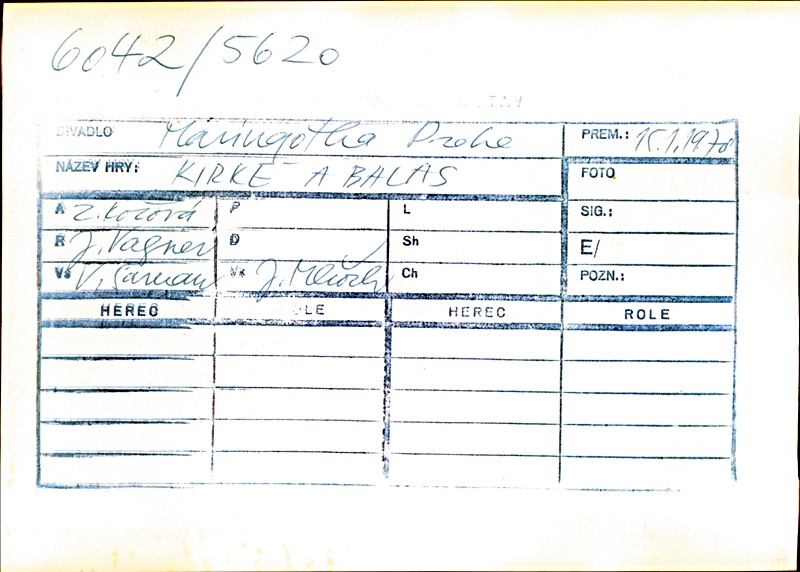 6042/5620
DIVADLO Maringotka Praha PREM.: 15.1.1978
NÁZEV HRY: KIRKÉ A BALAS FOTO
A Z. Kočová P L SIG.:
R J. Vagner D Sh E/
Vš V. Vk J. Ch POZN.:
HEREC ROLE HEREC ROLE